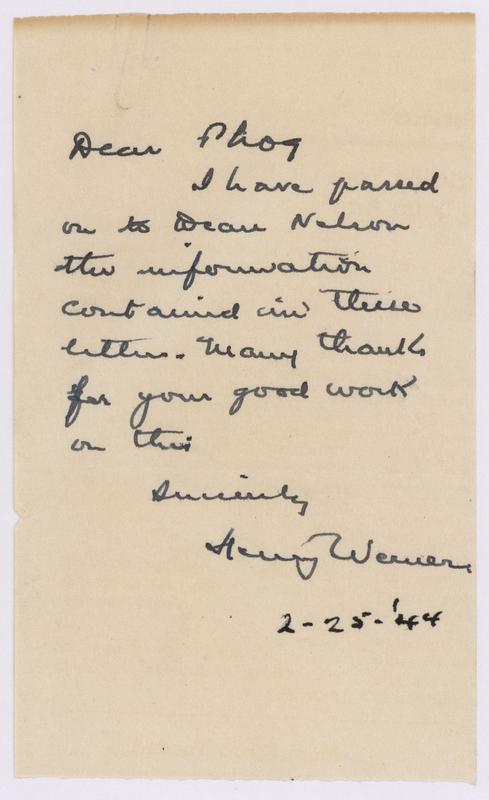 Dear Phog
I have passed
on to Dean Nelson
the information
contained in these
letters. Many thanks
for your good work
on this
Sincerely
Henry Werner
2-25-'44